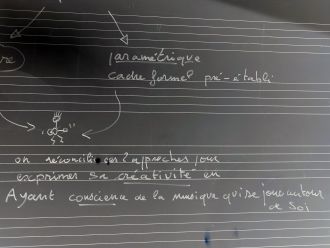 paramétrique
cadre formel pré-établi
on réconcilie ces 2 approches pour
exprimer sa créativité en
Ayant conscience de la musique qui se joue autour
de soi